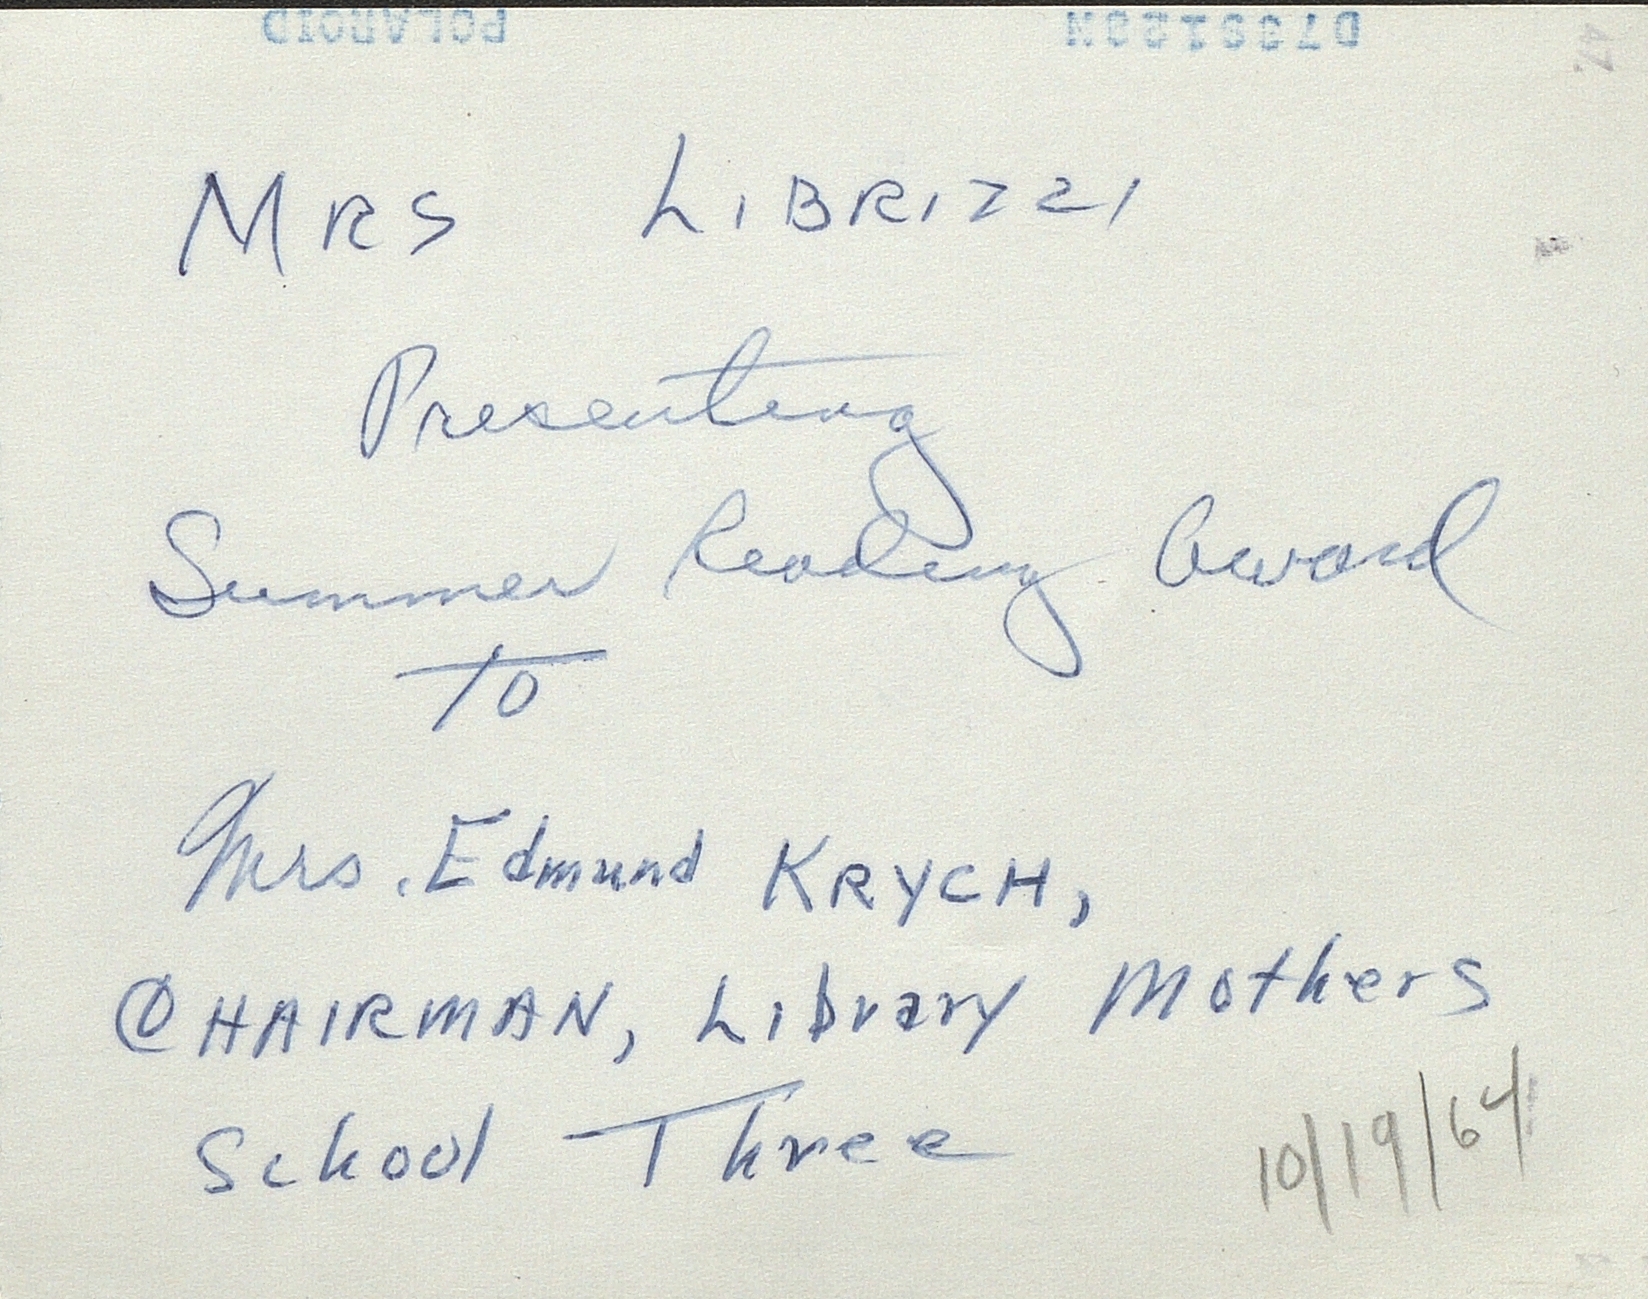 POLAROID
MRS LIBRIZZI
Presenting
Summer Reading Award
To
Mrs. Edmund KRYCH,
CHAIRMAN, Library Mothers
School Three
10/19/64